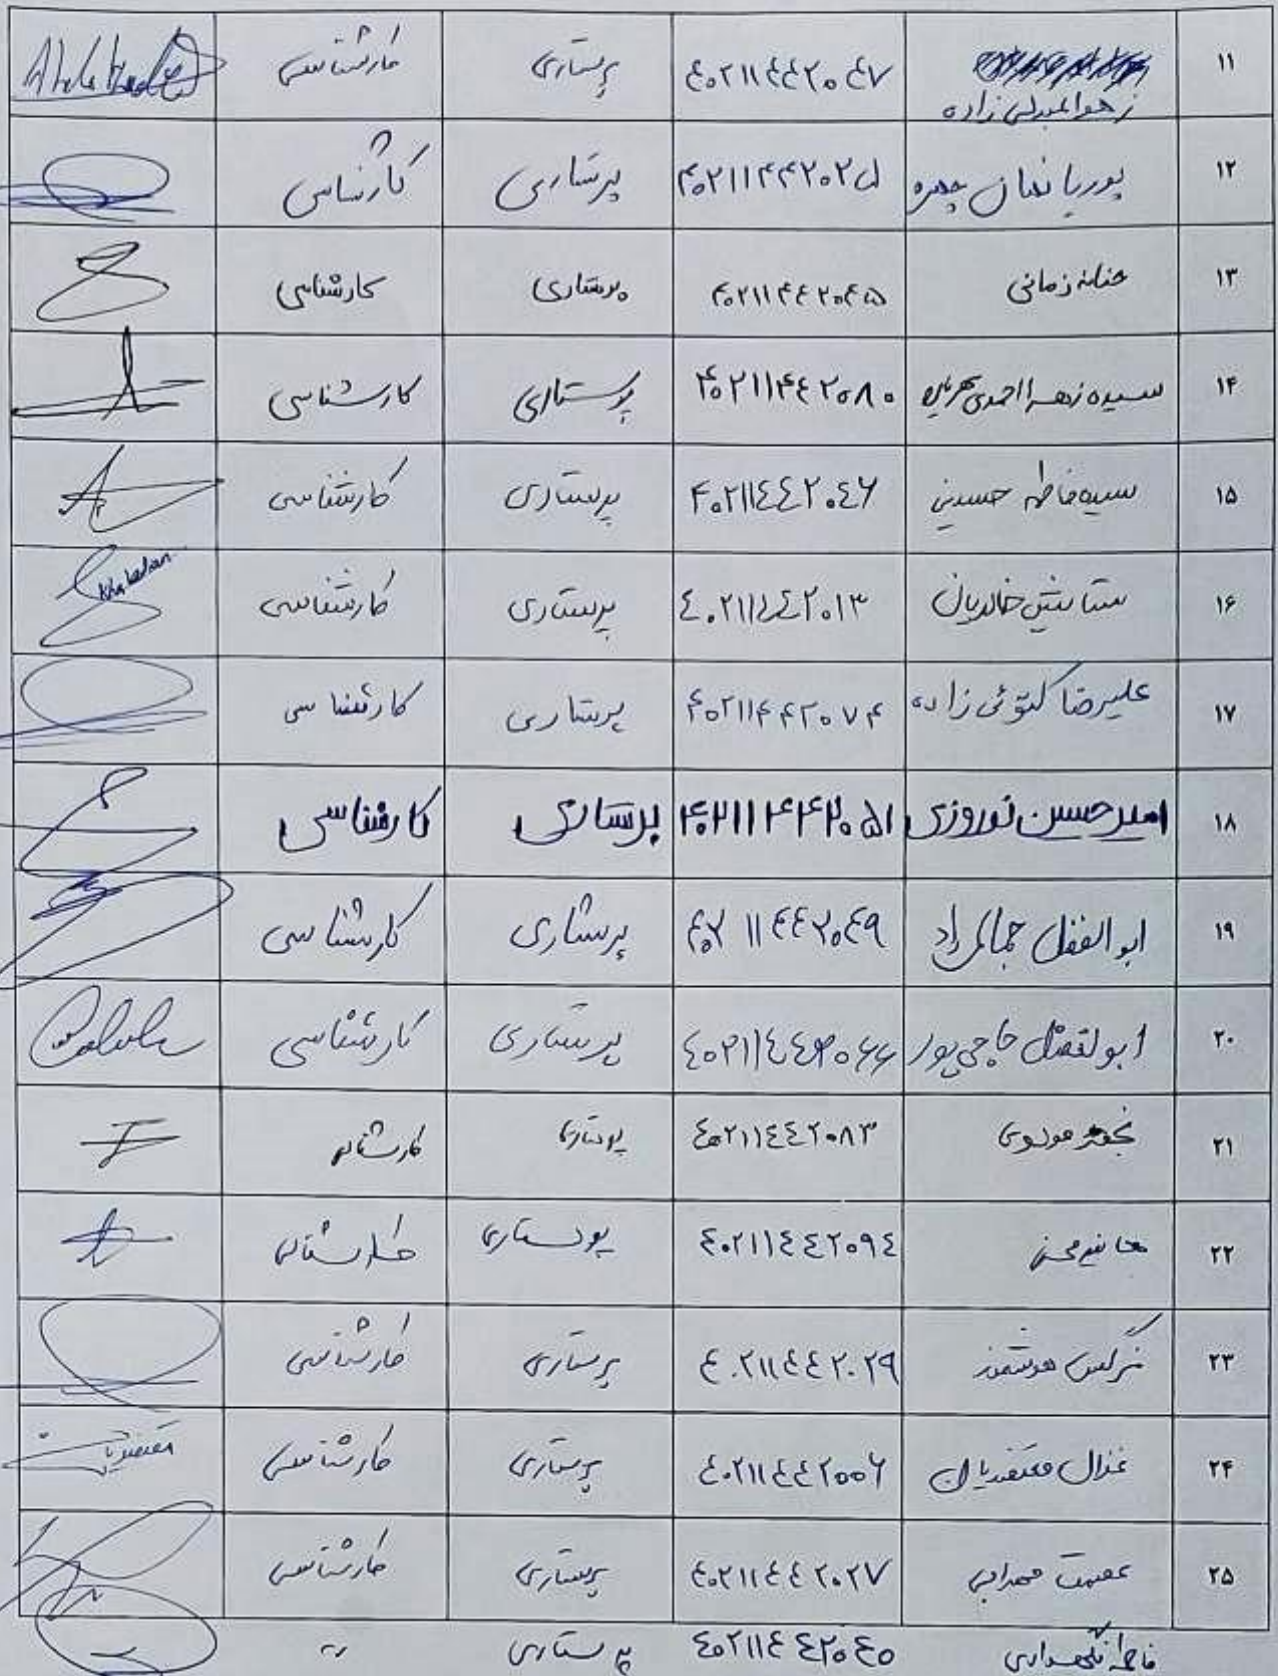 ۱۱ زهرا عبدلی زاده ٤٠٢١١٤٤٢٠٤٧ پرستاری کارشناسی
۱۲ پوریا نعان چهره ۴۰۲۱۱۴۴۲۰۲۵ پرستاری کارشناسی
۱۳ حنانه زمانی ۴۰۲۱۱۴٤۲۰۴۵ پرستاری کارشناسی
۱۴ سیده زهرا احمدی ۴۰۲۱۱۴٤۲۰۸۰ پرستاری کارشناسی
۱۵ سیده فاطمه حسینی ۴۰۲۱۱٤٤۲۰٤۶ پرستاری کارشناسی
۱۶ ستایش خالدیان ٤۰۲۱۱٤٤۲۰۱۳ پرستاری کارشناسی Khaledian
۱۷ علیرضا زاده ۴۰۲۱۱۴۴۲۰۷۴ پرستاری کارشناسی
۱۸ امیرحسین نوروزی ۴۰۲۱۱۴۴۲۰۵۱ پرستاری کارشناسی
۱۹ ابوالفضل جمالی راد ۴۰۲۱۱٤٤۲۰٤۹ پرستاری کارشناسی
۲۰ ابولفضل حاجی پور ٤۰۲۱۱٤٤۲۰۶۶ پرستاری کارشناسی
۲۱ موسوی ٤۰۲۱۱٤٤۲۰۸۳ پرستاری کارشناسی
۲۲ ٤۰۲۱۱٤٤۲۰۹٤ پرستاری کارشناسی
۲۳ نرگس هوشمند ٤۰۲۱۱٤٤۲۰۲۹ پرستاری کارشناسی
۲۴ غزال معتضدیان ٤۰۲۱۱٤٤۲۰۰۶ پرستاری کارشناسی
۲۵ عصمت مهرابی ٤۰۲۱۱٤٤۲۰۲۷ پرستاری کارشناسی
فاطمه نگهداری ٤۰۲۱۱٤٤۲۰٤۰ پرستاری